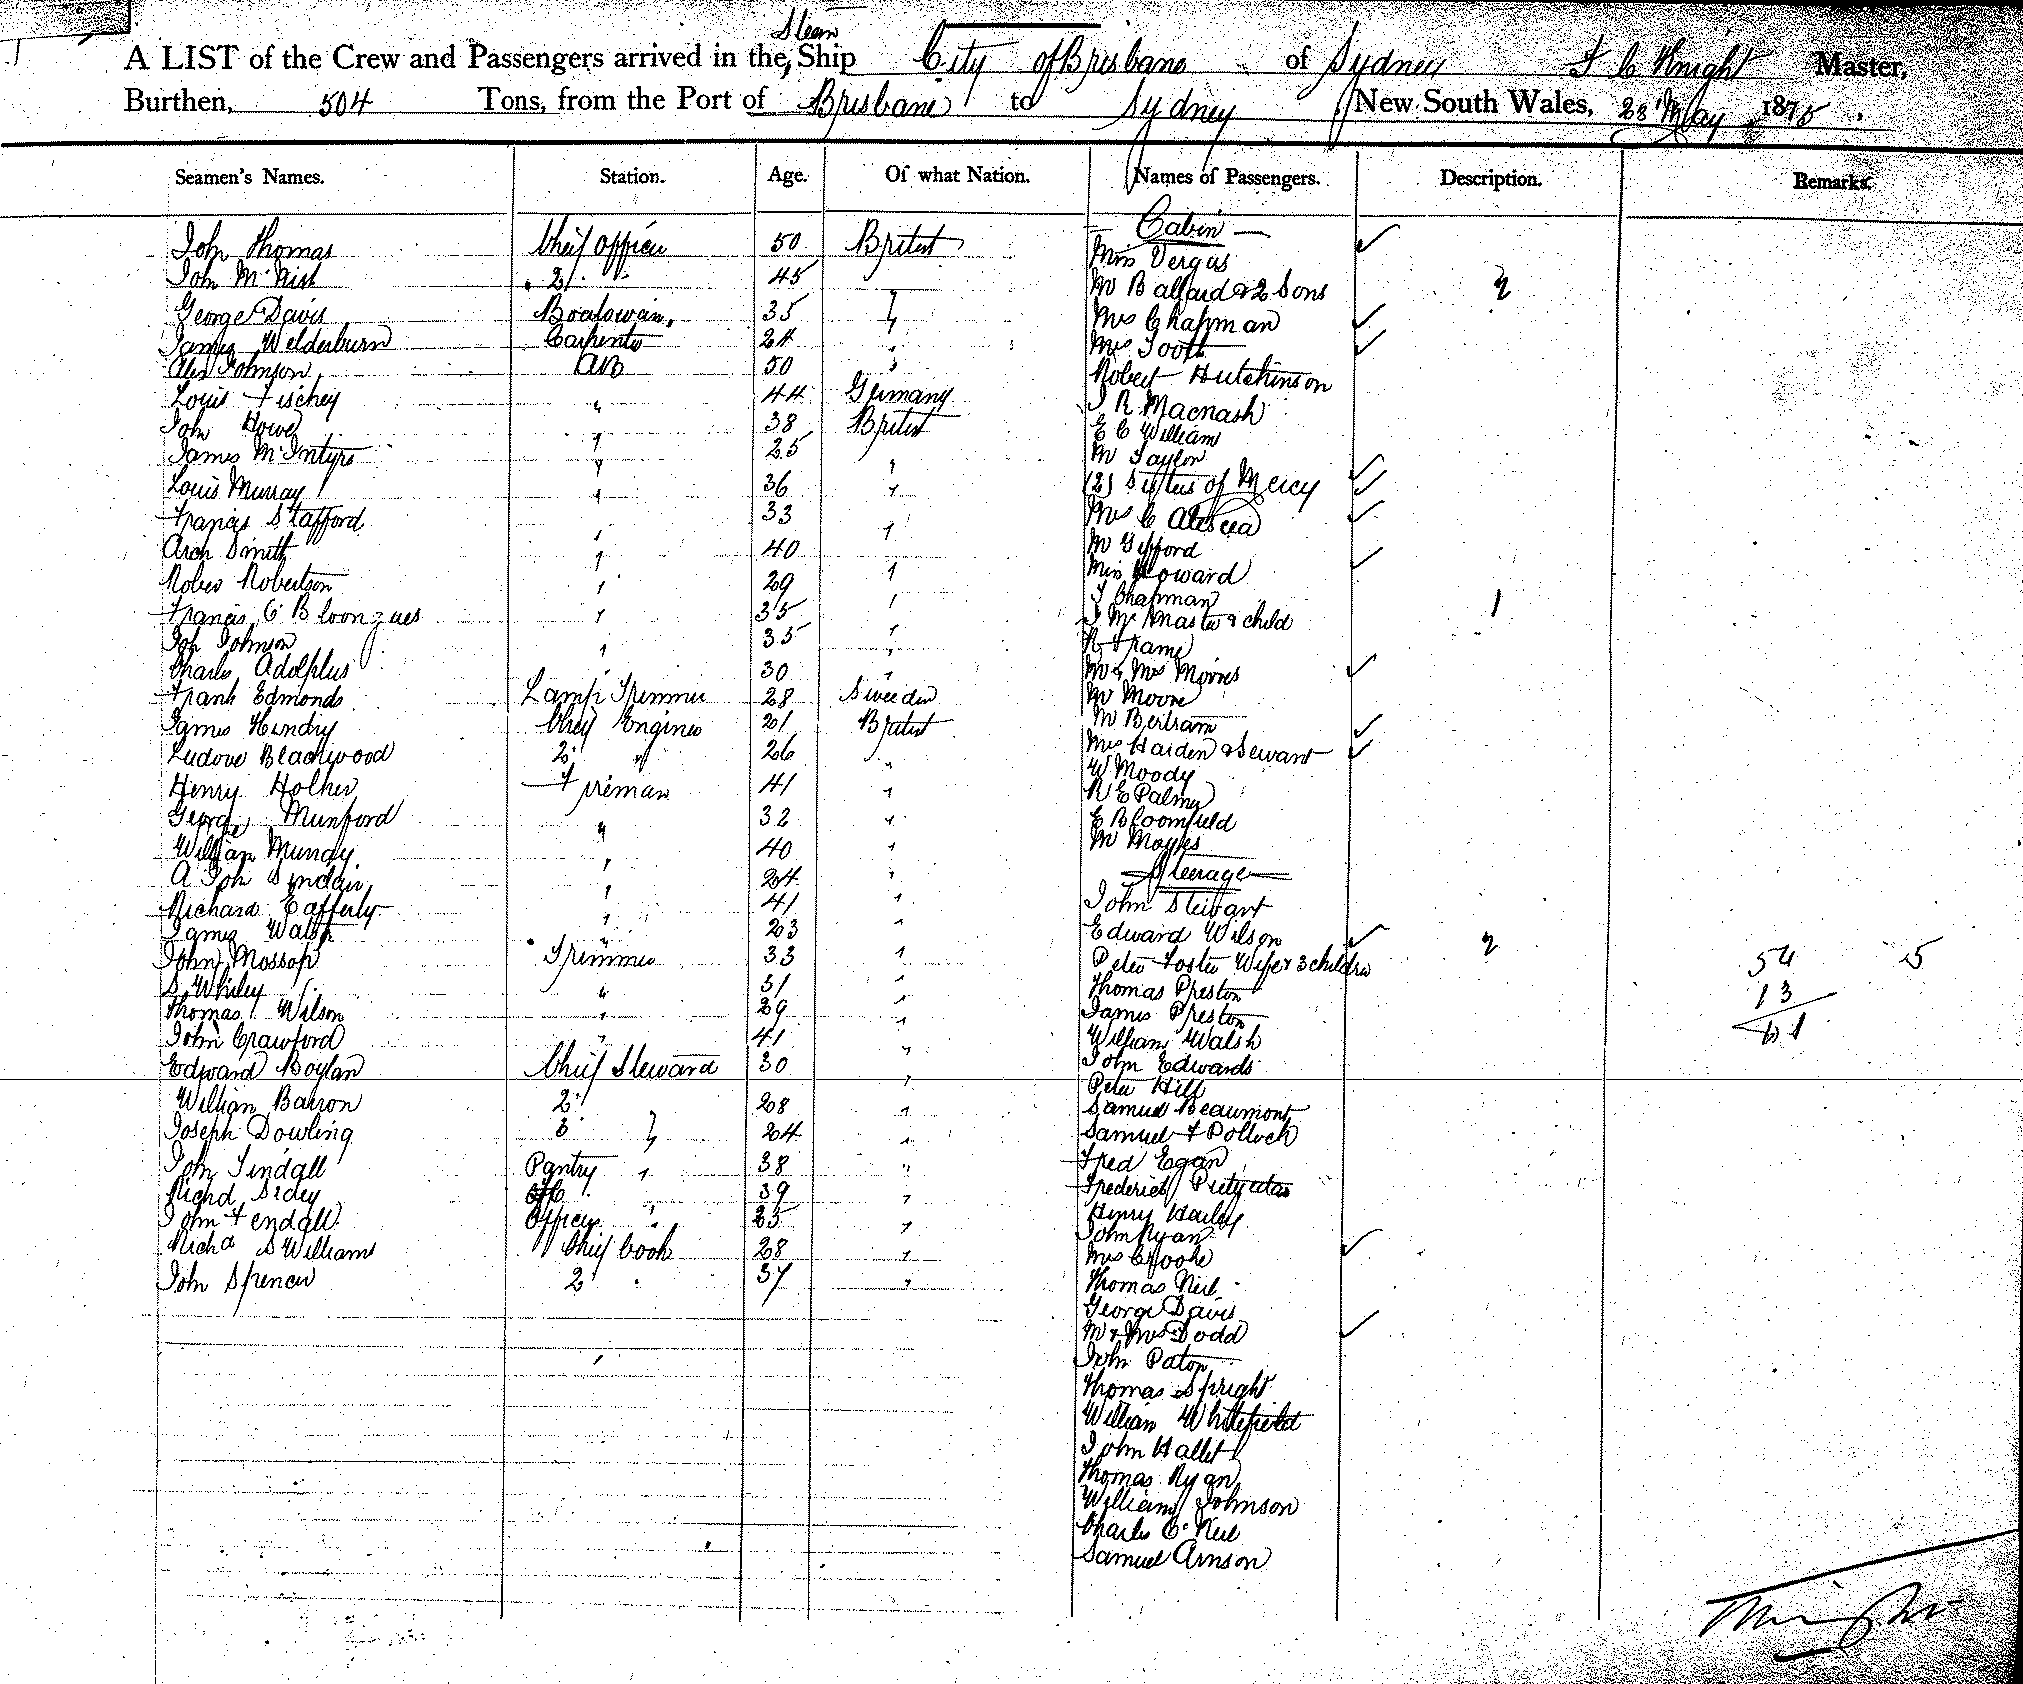 Steam
A LIST of the Crew and Passengers arrived in the Ship City of Brisbane of Sydney F C Knight Master,
Burthen, 504 Tons, from the Port of Brisbane to Sydney New South Wales, 28 May 1875.
Seamen's Names. Station. Age. Of what Nation. Names of Passengers. Description. Remarks.
John Thomas Chief Officer 50 British
John 2 " 45
George Davis Boatswain 35 "
James Welderburn Carpenter 24 "
Alex Johnson AB 50 "
Louis Fischey " 44 Germany
John Howe " 38 British
James McIntyre " 25 "
Louis Murray " 36 "
Francis Stafford " 33 "
Arch Smith " 40 "
Robert Robertson " 29 "
Francis " 35 "
Joh Johnson " 35 "
Charles Adolphus " 30 "
Frank Edmonds Lamp Trimmer 28 Sweeden
James Hendry Chief Engineer 21 British
Ludove Blackwood 2 " 26 "
Henry Holher Fireman 41 "
George Munford " 32 "
William Munday " 40 "
A Joh Sinclair " 24 "
Richard Cafferty " 41 "
James Walsh " 23 "
John Mossop Trimmer 33 "
S Whiley " 31 "
Thomas Wilson " 39 "
John Crawford " 41 "
Edward Boylan Chief Steward 30 "
William Barron 2 " 28 "
Joseph Dowling 3 " 24 "
John Tindall Pantry " 38 "
Richd Sidey 39 "
John Fendall Officers " 25 "
Richd S Williams Chief Cook 28 "
John Spencer 2 " 37 "
Cabin
Miss Vergus
Mr Ballard & 2 Sons 2
Mrs Chapman
Mrs Tooth
Robert Hutchinson
J R Macnash
E C William
Mr Taylor
(2) Sisters of Mercy
Mrs C
Mr Gifford
Miss Howard
J Chapman
J McMaster & child 1
R Frame
Mr & Mrs Morris
Mr Moore
Mr Bertram
Mrs Harden & Servant
W Moody
R E Palmer
E Bloomfield
Mr Moyes
Steerage
John Stewart
Edward Wilson
Peter Foster Wife & 3 children 2 54 5
Thomas Preston 13
James Preston
William Walsh
John Edwards
Peter Hill
Samuel Beaumont
Samuel F Pollock
Fred Egan
Frederick
Henry Hailey
John Ryan
Mrs Crooke
Thomas Neil
George Davis
Mr & Mrs Dodd
John Paton
Thomas Spright
William Whitefield
John Hallet
Thomas Ryan
William Johnson
Charles O'Neil
Samuel Arnson